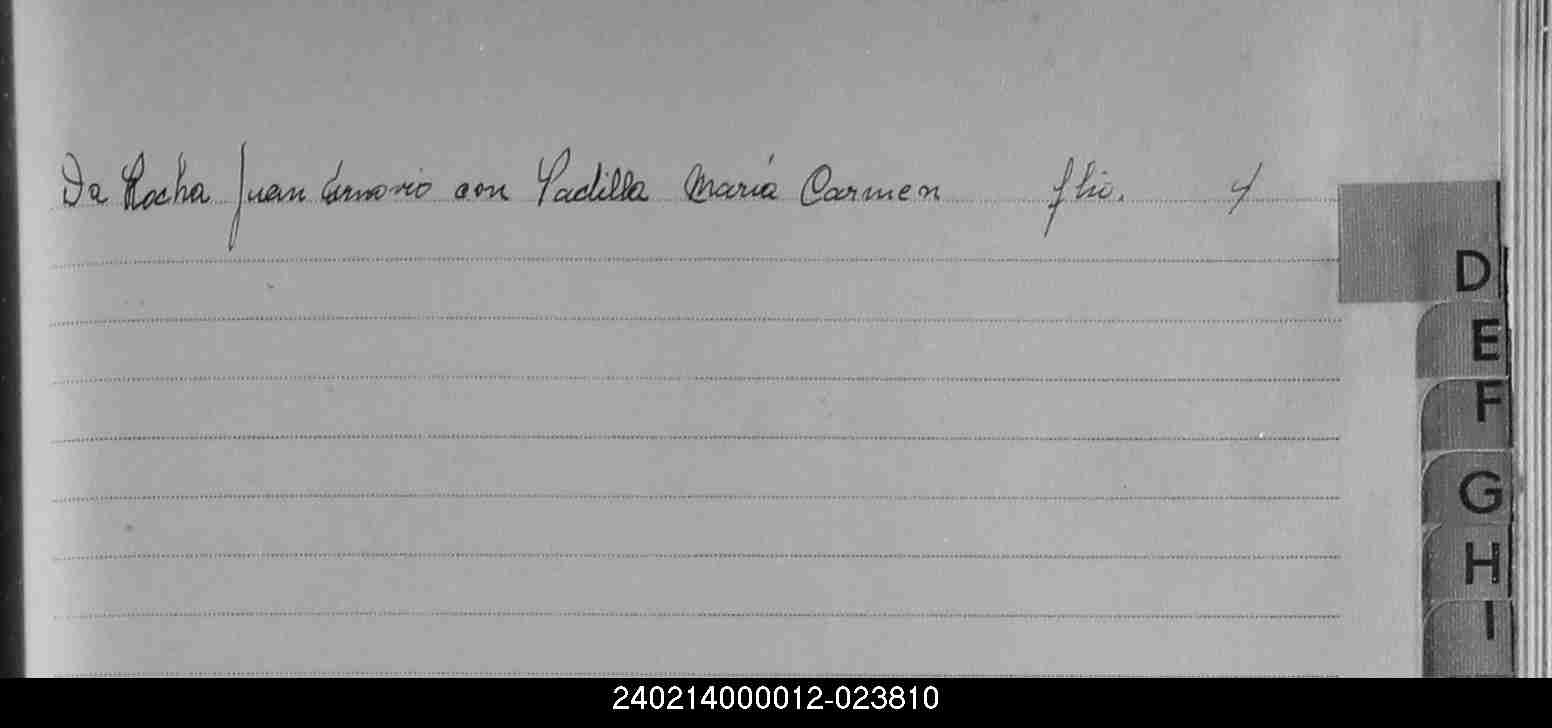 Da Rocha Juan con Padilla María Carmen flio. 4
D
E
F
G
H
I
240214000012-023810